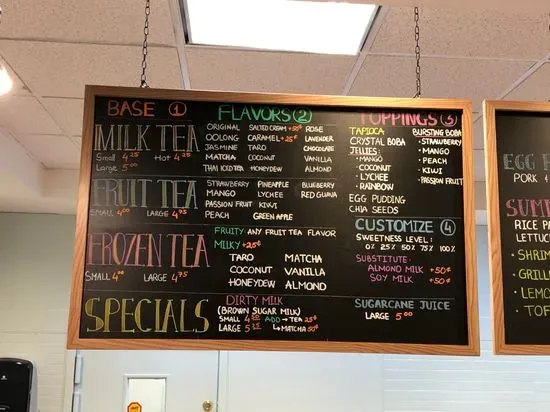 BASE 1
MILK TEA
Small 4.25 Hot 4.25
Large 5.00
FRUIT TEA
SMALL 4.00 LARGE 4.75
FROZEN TEA
SMALL 4.00 LARGE 4.75
SPECIALS
FLAVORS 2
ORIGINAL SALTED CREAM +50¢ ROSE
OOLONG CARAMEL +25¢ LAVENDER
JASMINE TARO CHOCOLATE
MATCHA COCONUT VANILLA
THAI ICED TEA HONEYDEW ALMOND
STRAWBERRY PINEAPPLE BLUEBERRY
MANGO LYCHEE RED GUAVA
PASSION FRUIT KIWI
PEACH GREEN APPLE
FRUITY ANY FRUIT TEA FLAVOR
MILKY +25¢
TARO MATCHA
COCONUT VANILLA
HONEYDEW ALMOND
DIRTY MILK
(BROWN SUGAR MILK)
SMALL 4.50 ADD → TEA 25¢
LARGE 5.25 ↳ MATCHA 50¢
TOPPINGS 3
TAPIOCA
CRYSTAL BOBA
JELLIES:
• MANGO
• COCONUT
• LYCHEE
• RAINBOW
EGG PUDDING
CHIA SEEDS
BURSTING BOBA
• STRAWBERRY
• MANGO
• PEACH
• KIWI
• PASSION FRUIT
CUSTOMIZE 4
SWEETNESS LEVEL:
0% 25% 50% 75% 100%
SUBSTITUTE:
ALMOND MILK +50¢
SOY MILK +50¢
SUGARCANE JUICE
LARGE 5.00
EGG
PORK &
RICE PA
LETTUC
• SHRIM
• GRILL
• LEMO
• TOF